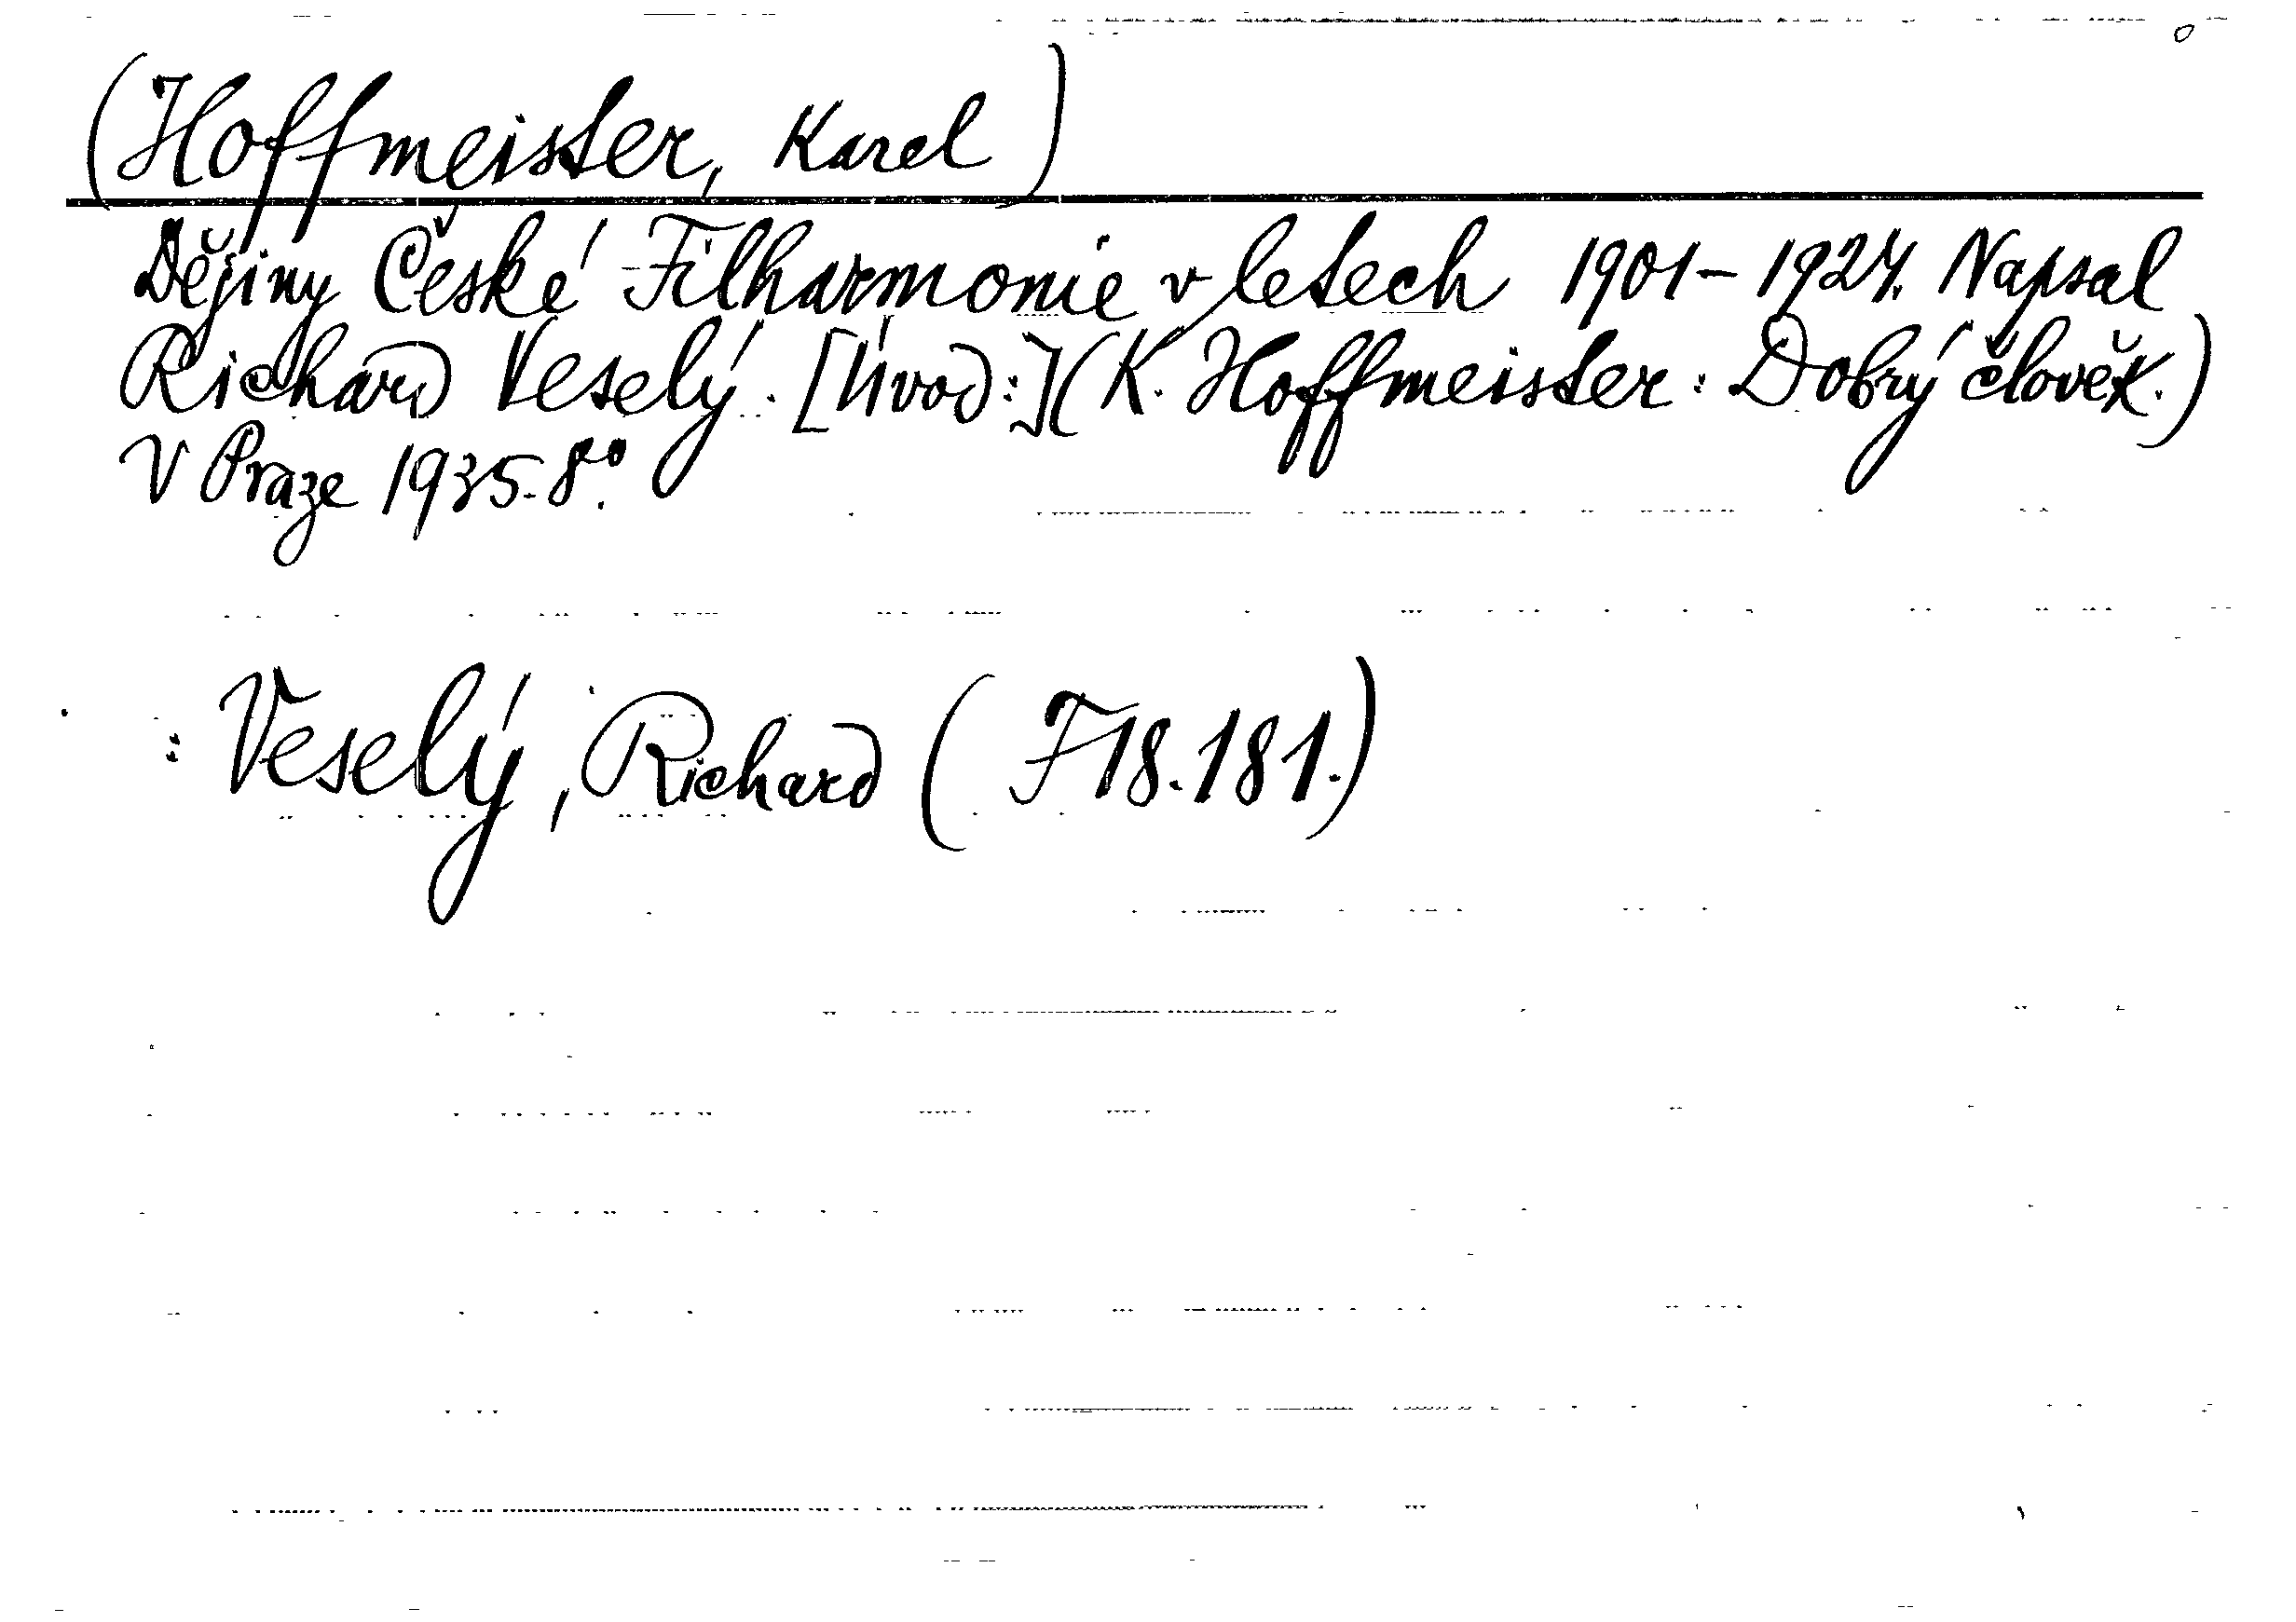 (Hoffmeister, Karel)
Dějiny České Filharmonie v letech 1901–1924. Napsal
Richard Veselý. [Úvod:] (K. Hoffmeister: Dobrý člověk.)
V Praze 1935. 8º.
: Veselý, Richard (F 18.181.)